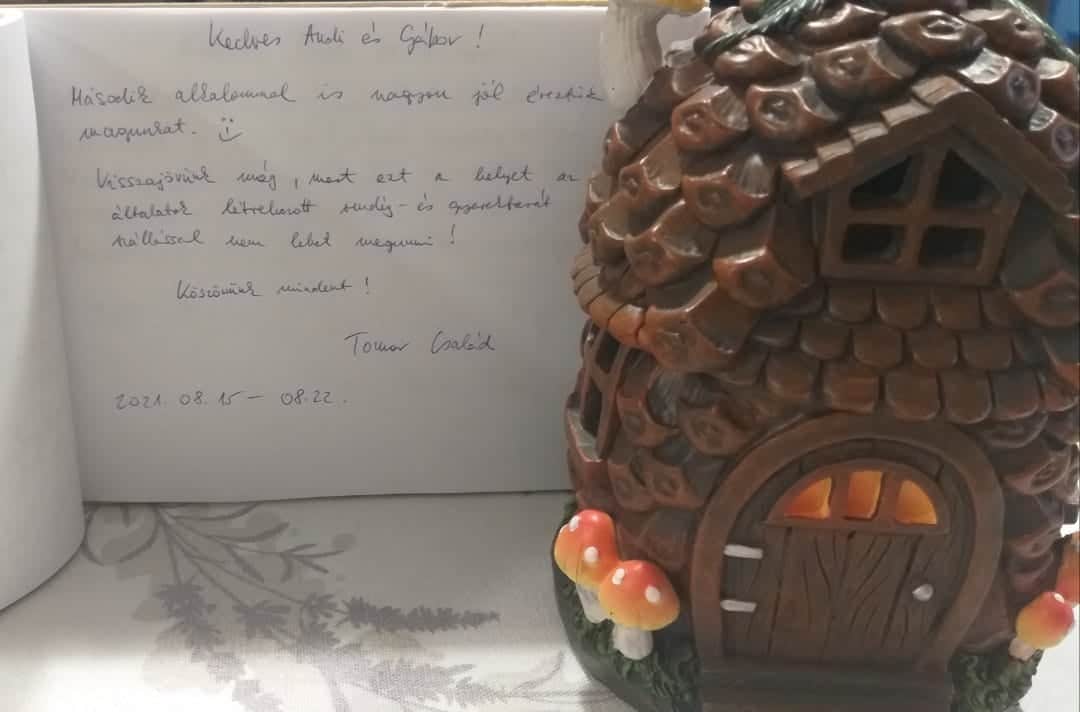 Kedves Andi és Gábor!
Második alkalommal is nagyon jól éreztük
magunkat.
Visszajövünk még, mert ezt a helyet az
általatok létrehozott vendég- és gyerekbarát
szállással nem lehet megunni!
Köszönünk mindent!
Tomor Család
2021. 08. 15 - 08.22.